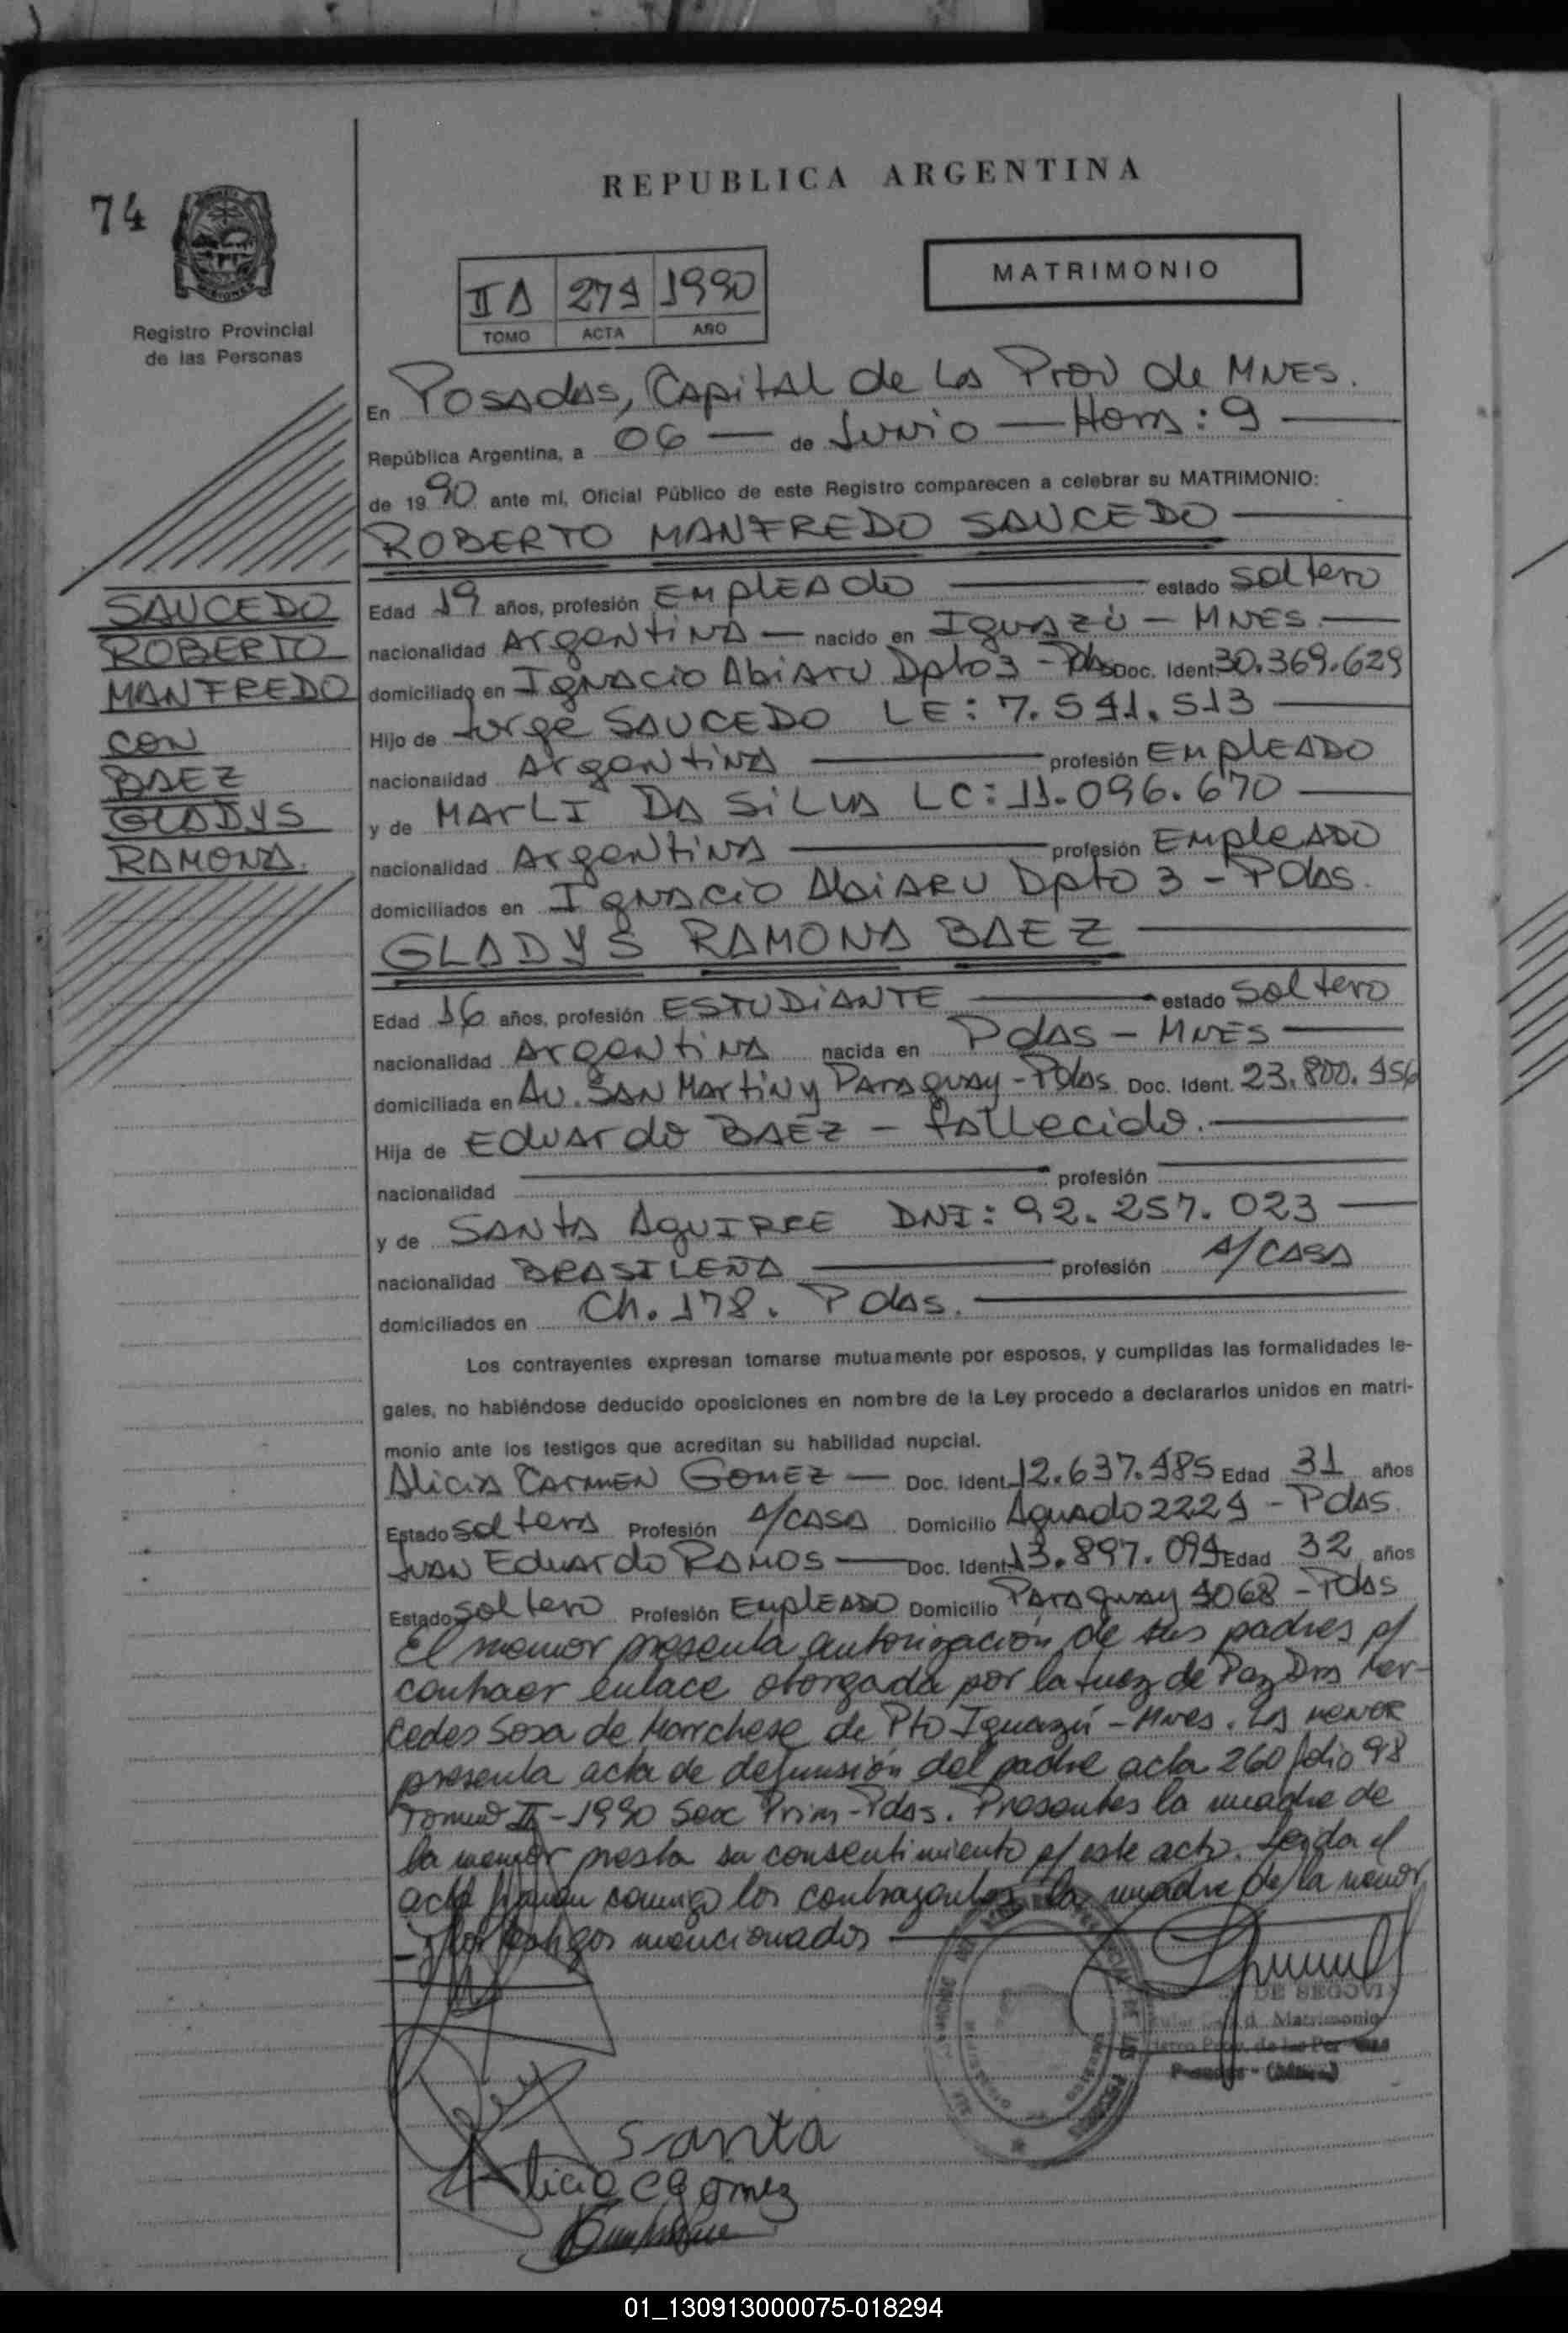 REPUBLICA ARGENTINA
74
MISIONES
Registro Provincial
de las Personas
MATRIMONIO
II A 274 1990
TOMO ACTA AÑO
En Posadas, Capital de la Prov de MNES.
República Argentina, a 06 — de Junio — Hora: 9
de 1990 ante mí, Oficial Público de este Registro comparecen a celebrar su MATRIMONIO:
ROBERTO MANFREDO SAUCEDO
SAUCEDO
ROBERTO
MANFREDO
CON
BAEZ
GLADYS
RAMONA.
Edad 19 años, profesión EMPLEAdo estado Soltero
nacionalidad Argentina — nacido en Iguazú - MNES.
domiciliado en Ignacio Abiaru Dpto 3 - Pdas Doc. Ident. 30.369.629
Hijo de Jorge SAUCEDO LE: 7.541.513
nacionalidad Argentina profesión EMPLEADO
y de MARLI DA SILVA LC: 11.096.670
nacionalidad Argentina profesión EmpleADO
domiciliados en Ignacio Abiaru Dpto 3 - Pdas.
GLADYS RAMONA BAEZ
Edad 16 años, profesión ESTUDIANTE estado Soltero
nacionalidad Argentina nacida en Pdas - MNES
domiciliada en Av. San Martin y Paraguay - Pdas Doc. Ident. 23.800.456
Hija de Eduardo BAEZ - fallecido.
nacionalidad profesión
y de SANTA AGUIRRE DNI: 92.257.023
nacionalidad BRASILEÑA profesión A/CASA
domiciliados en Ch. 178. Pdas.
Los contrayentes expresan tomarse mutuamente por esposos, y cumplidas las formalidades le-
gales, no habiéndose deducido oposiciones en nombre de la Ley procedo a declararlos unidos en matri-
monio ante los testigos que acreditan su habilidad nupcial.
Alicia Carmen Gomez — Doc. Ident. 12.637.485 Edad 31 años
Estado Soltera Profesión A/CASA Domicilio Aguado 2224 - Pdas.
Juan Eduardo Ramos — Doc. Ident. 13.897.094 Edad 32 años
Estado Soltero Profesión EmpleADO Domicilio Paraguay 4068 - Pdas
El menor presenta autorización de sus padres p/
contraer enlace otorgada por la Juez de Paz Dra Mer-
cedes Sosa de Marchese de Pto Iguazú - Mnes. La menor
presenta acta de defunsión del padre acta 260 folio 98
Tomo II - 1990 Secc Prim - Pdas. Presentes la madre de
la menor presta su consentimiento p/ este acto. Leída el
acta firman conmigo los contrayentes, la madre de la menor
y los testigos mencionados
DE SEGOVI
d. Matrimonio
Prov. de las Per
Posadas - (Mnes)
Santa
Alicia C Gomez
01_130913000075-018294